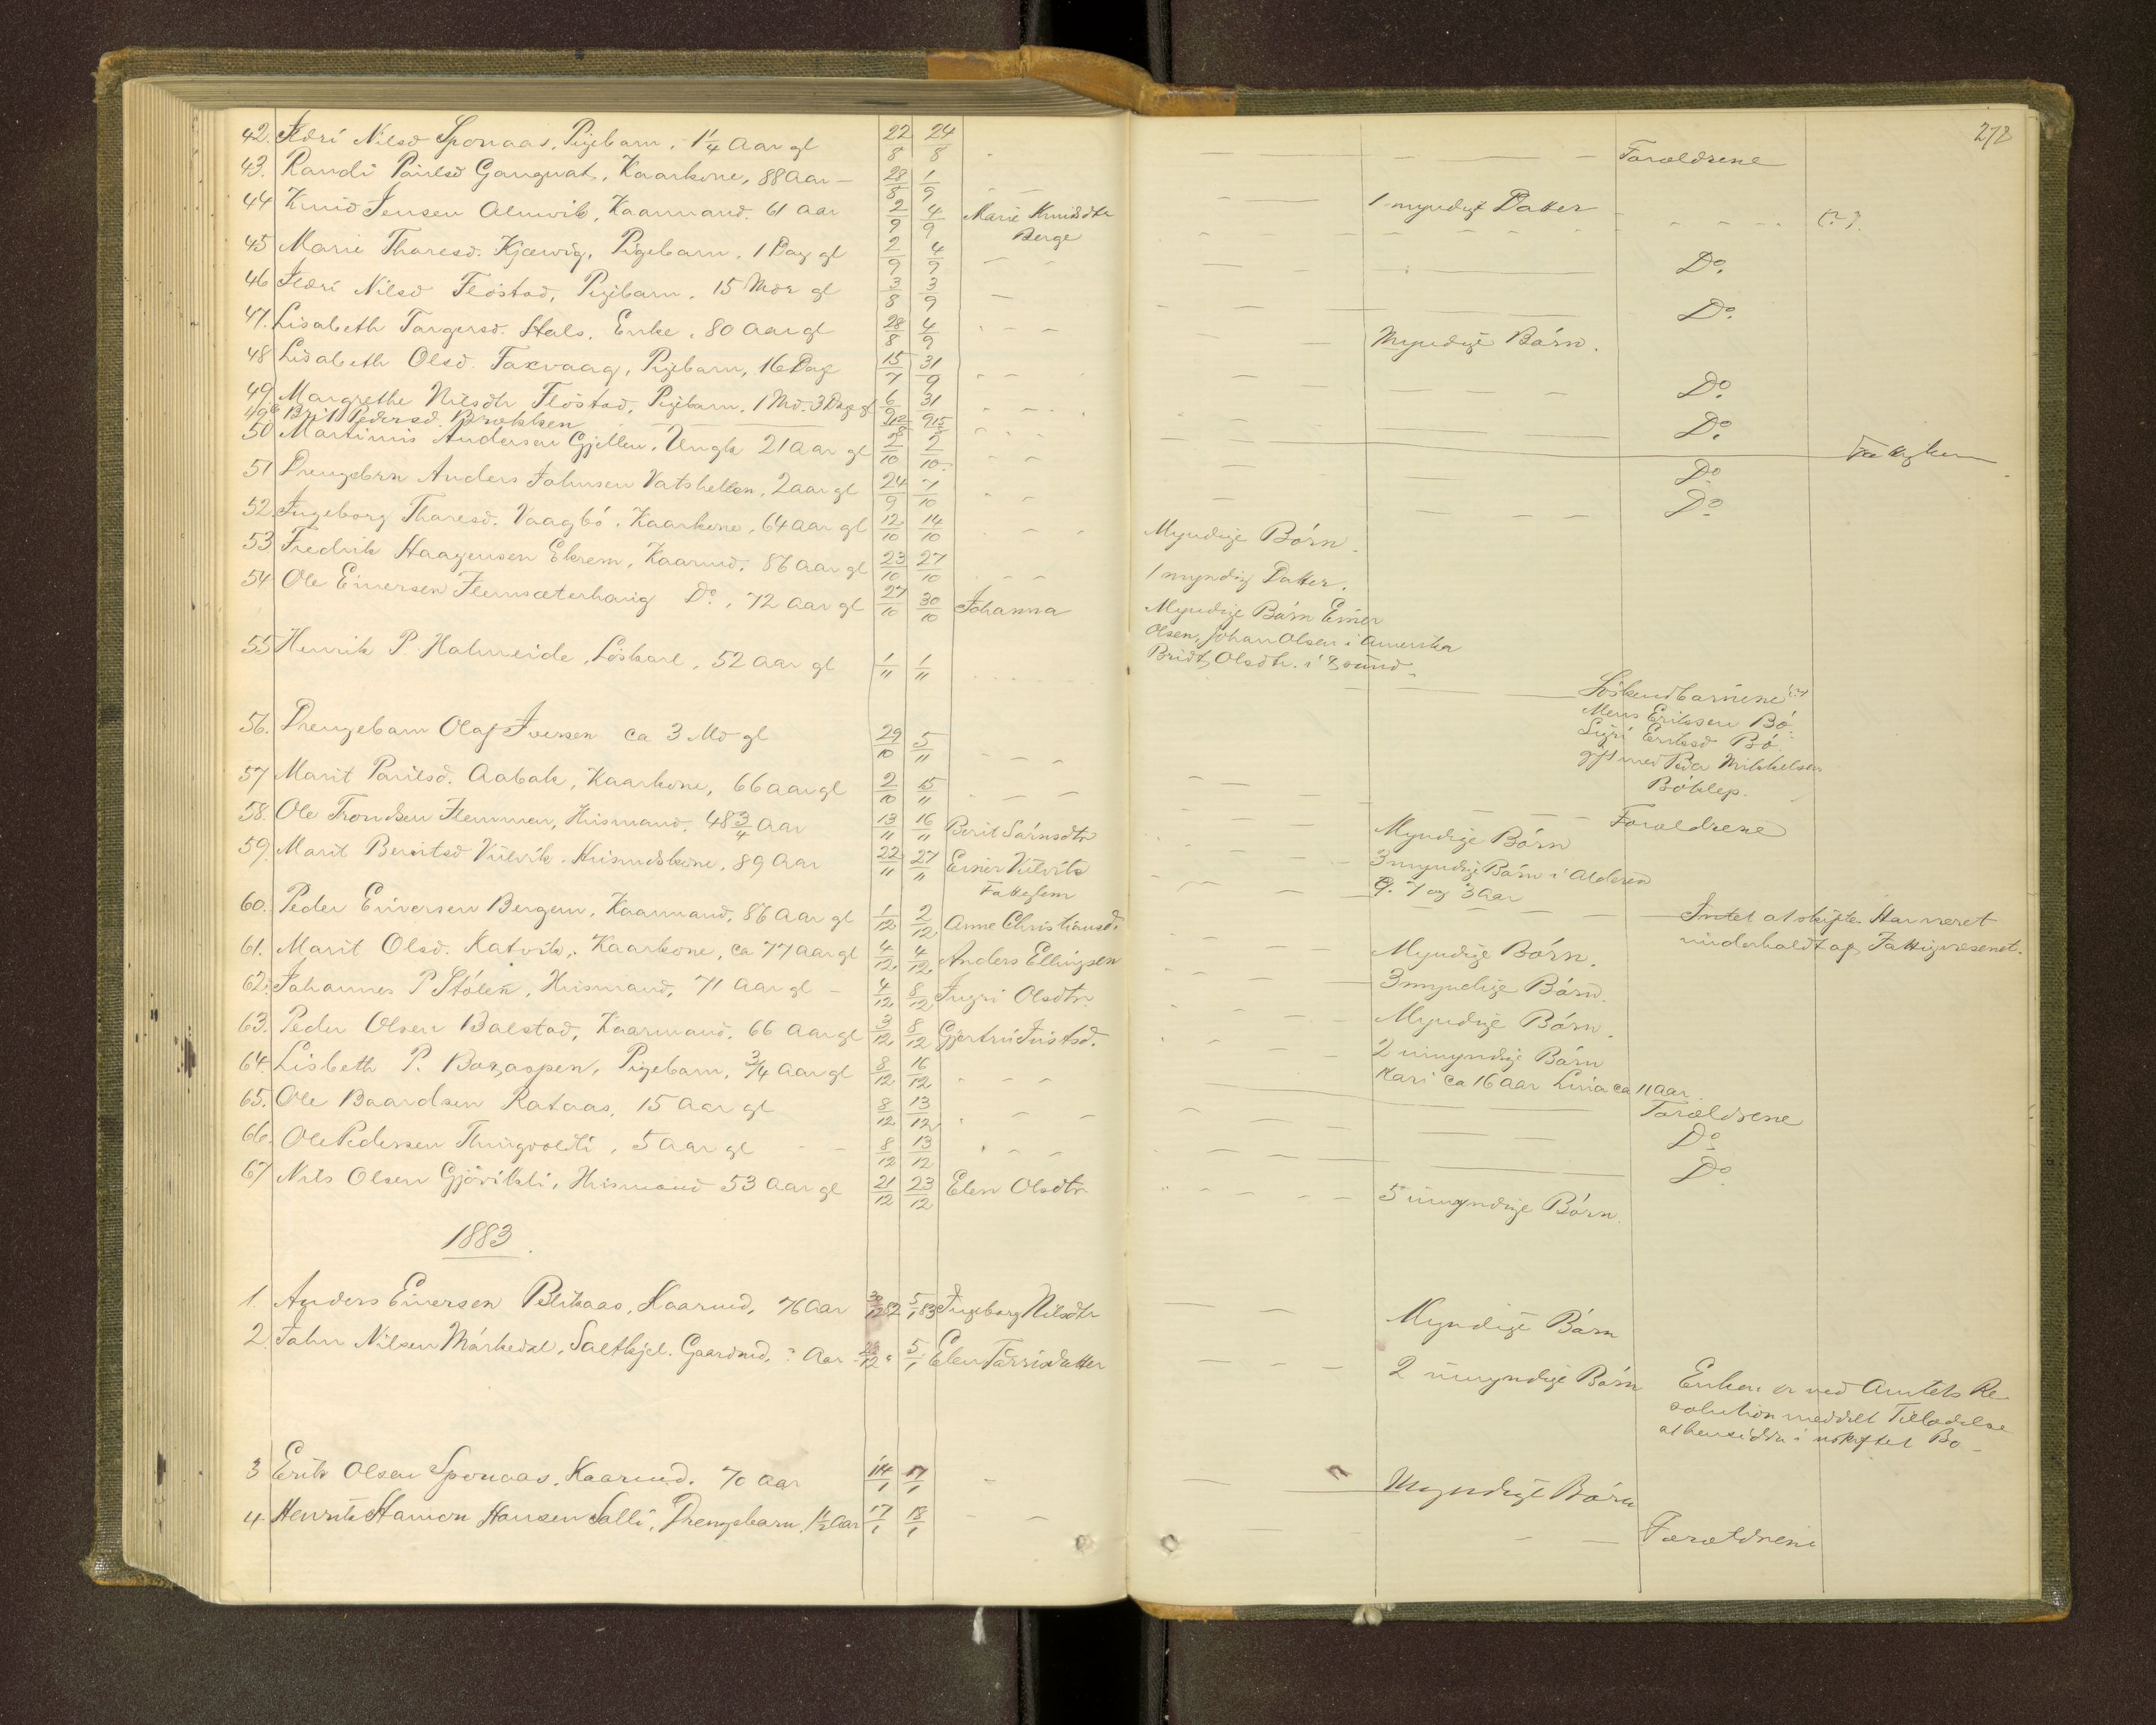 272
42. Sldri Nilsd Sponaas, Pigebarn, 1 1/4 Aar gl 22/8 24/8 - Forældrene
43. Randi Paulsd Gangnat, Kaarkone, 88 Aar - 28/8 1/9 - - 1 myndig Datter
44 Knud Jensen Almvik, Kaarmand. 61 Aar 2/9 4/9 Marie Knudsdtr (?)
Berge
45 Marie Tharesd. Kjørvig, Pigebarn, 1 Dag gl 2/9 4/9 - - Do.
46 Nilsd Flöstad, Pigebarn, 15 Mdr gl 3/8 3/9 - Do.
47. Lisabeth Torgersd. Hals, Enke, 80 Aar gl 28/8 4/9 - - Myndige Børn.
48 Lisabeth Olsd. Faxvaag, Pigebarn, 16 Dag 15/7 31/9 - - Do
49 Margrethe Nilsdtr Flöstad, Pigebarn, 1 Md. 3 Dag gl 6/9 31/9 - - Do.
49b Brit Pedersd. Brækken 12/8 15/8 Fattiglem
50 Martinus Andersen Gjellen, Ungk. 21 Aar gl 2/10 2/10 - - Do
51 Drengebrn Anders Johnsen Vatshellen, 2 Aar gl 24/9 7/10 - - Do
52. Ingeborg Tharesd. Vaagbö, Kaarkone, 64 Aar gl 12/10 14/10 - - Myndige Børn.
53 Fredrik Haagensen Ekrem, Kaarmd. 86 Aar gl 23/10 27/10 - - 1 myndig Datter.
54. Ole Einersen Flemsæterhaug Do., 72 Aar gl 27/10 30/10 Johanna Myndige Børn Einer
Olsen, Johan Olsen i Amerika
Bridt Olsdtr. i Sund.
55 Henrik P. Halmeide, Löskarl, 52 Aar gl 1/11 1/11 Söskendbarnene
Mens Eriksen Bö
Sigri Eriksd Bö.
gift med Peder Mikkelsen
Böklep.
56. Drengebarn Olaf Iversen ca 3 Md gl 29/10 5/11 - - Forældrene
57 Marit Paulsd. Aabak, Kaarkone, 66 Aar gl 2/10 15/11 - - Myndige Børn
58. Ole Trondsen Flemmen, Husmand, 48 3/4 Aar 13/11 16/11 Berit Larnsdtr 3 myndige Børn i Alderen
9. 7 og 3 Aar
59. Marit Berntsd Vulvik. Husmdskone, 89 Aar 22/11 27/11 Einer Vulvik
Fattiglem Intet at skifte. Har været
underholdt af Fattigvæsenet.
60. Peder Einersen Bergem, Kaarmand, 86 Aar gl 1/12 2/12 Anne Christiansd. Myndige Børn.
61. Marit Olsd. Katvik, Kaarkone, ca 77 Aar gl 4/12 4/12 Anders Ellingsen 3 myndige Børn.
62. Johannes P Stölen, Husmand, 71 Aar gl - 4/12 8/12 Ingri Olsdtr. Myndige Børn.
63. Peder Olsen Balstad, Kaarmand, 66 Aar gl 3/12 8/12 Gjertru Iustsd. 2 umyndige Børn
Kari ca 16 Aar Lina ca 11 Aar.
64. Lisbeth P. Boraspen, Pigebarn, 3/4 Aar gl 8/12 16/12 - - Forældrene
65. Ole Baardsen Rataas, 15 Aar gl 8/12 13/12 - - Do
66. Ole Pedersen Thingvoldli, 5 Aar gl - 8/12 13/12 - - Do
67 Nils Olsen Gjövikli, Husmand 53 Aar gl 21/12 23/12 Elen Olsdtr. 5 umyndige Børn.
1883.
1. Anders Einersen Blikaas, Kaarmd, 76 Aar 30/12 82 5/1 83 Ingeborg Nilsdtr Myndige Børn
2. John Nilsen Mörkedal, Saltkjel. Gaardmd, ? Aar 5/1 Elen Tørrisdatter 2 umyndige Børn Enken er ved Amtets Re-
solution meddelt Tilladelse
at hensidde i uskiftet Bo -
3 Erik Olsen Sponaas, Kaarmd. 70 Aar 14/1 17/1 - Myndige Børn
4 Henrik Hamon Hansen Salli, Drengebarn, 1 1/2 Aar 17/1 18/1 - - Forældrene